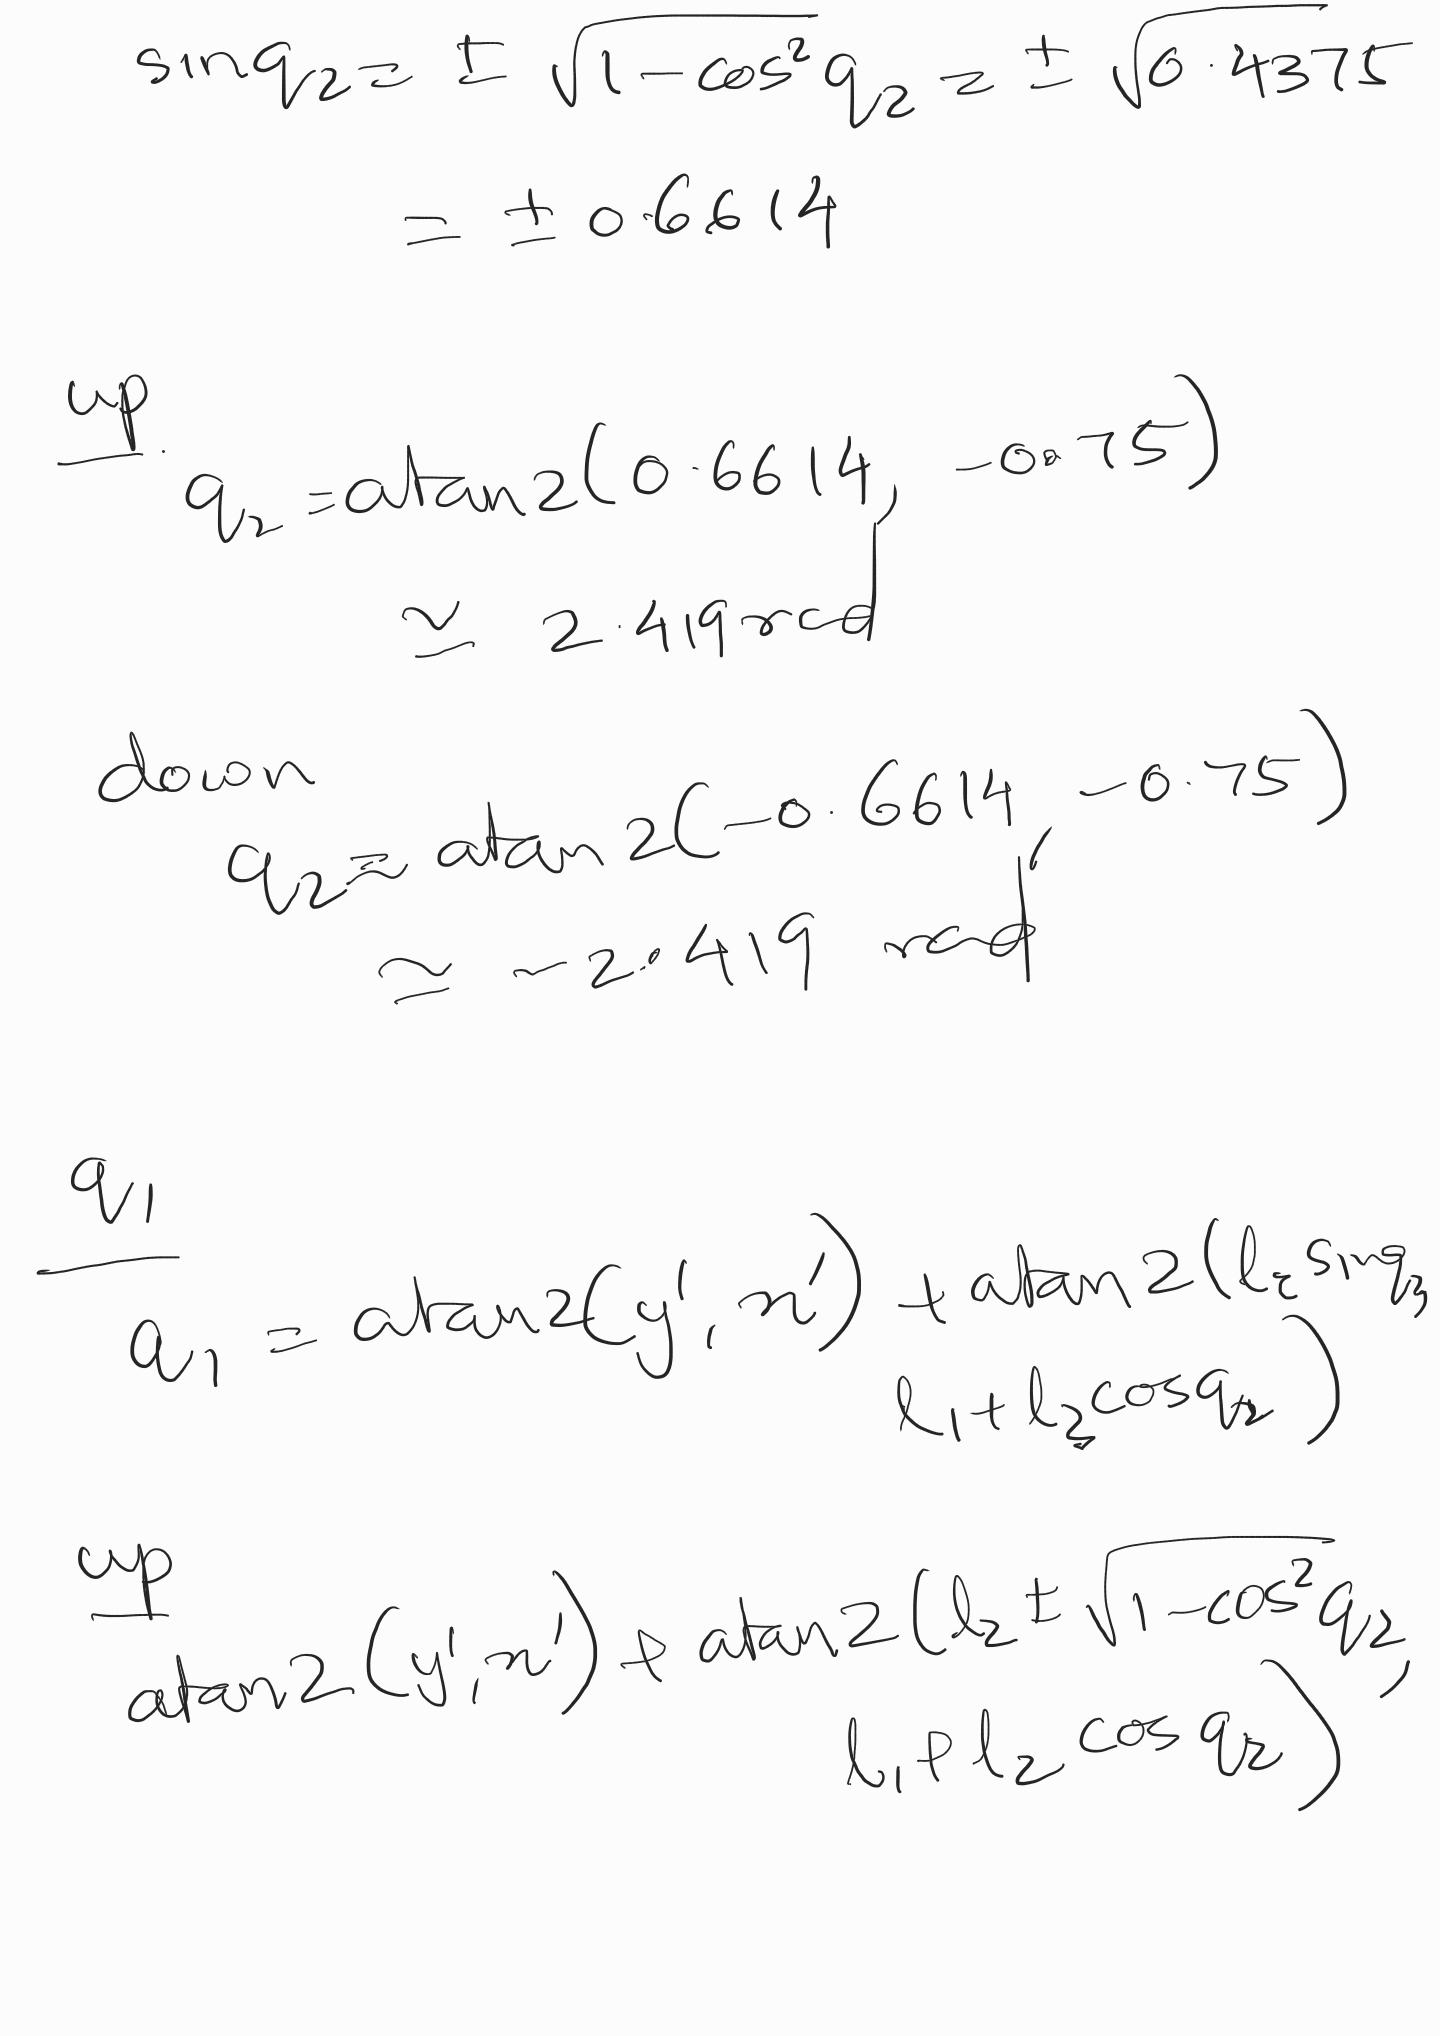 sinq₂ = ± √(1-cos²q₂) = ± √0.4375
= ± 0.6614
up
q₂ = atan2(0.6614, -0.75)
≃ 2.419 rad
down
q₂ = atan2(-0.6614, -0.75)
≃ -2.419 rad
q₁
q₁ = atan2(y', x') + atan2(l₂ sinq₂,
l₁+l₂cosq₂)
up
atan2(y', x') + atan2(l₂ ± √(1-cos²q₂),
l₁+l₂ cos q₂)